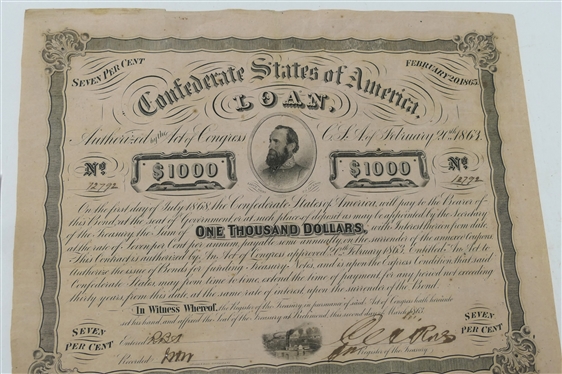 SEVEN PER CENT
FEBRUARY 20 1863.
Confederate States of America.
LOAN,
Authorized by the Act of Congress C.S.A. of February 20th 1863.
No. No.
$1000 $1000
12792 12792
On the first day of July 1868, the Confederate States of America, will pay to the Bearer of
this Bond, at the seat of Government or at such place of deposit as may be appointed by the Secretary
of the Treasury, the Sum of ONE THOUSAND DOLLARS, with Interest thereon from date
at the rate of Seven per Cent per annum, payable semi annually, on the surrender of the annexed Coupons
This Contract is authorized by An Act of Congress approved 20th February 1863, Entitled "An Act to
Authorise the issue of Bonds for funding Treasury Notes, and is upon the express Condition, that said
Confederate States may from time to time, extend the time of payment for any period not exceeding
Thirty years from this date at the same rate of interest, upon the surrender of the Bond
In Witness Whereof, the Register of the Treasury, in pursuance of said Act of Congress, hath hereunto
set his hand, and affixed the Seal of the Treasury at Richmond this second day of March 1863.
SEVEN PER CENT
Entered
Recorded
Register of the Treasury
SEVEN PER CENT